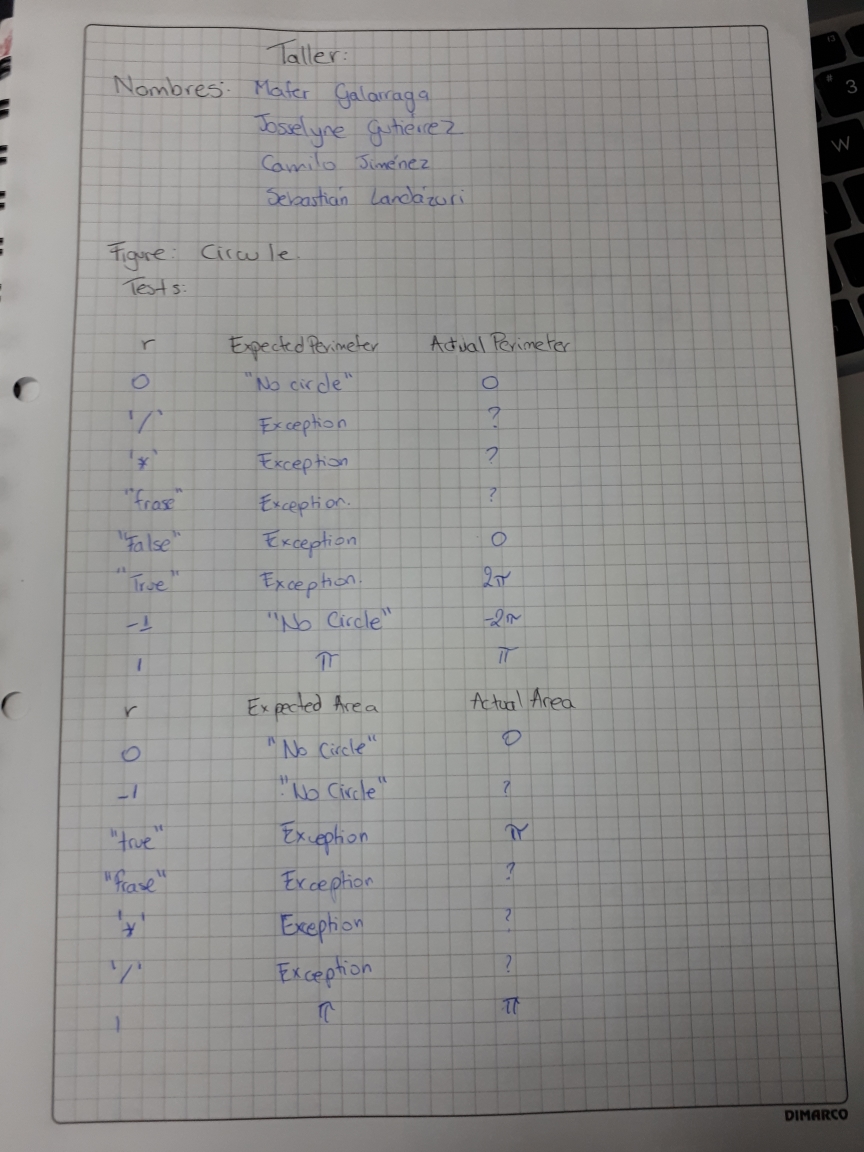 Taller:
Nombres: Mafer Galarraga
Josselyne Gutierrez
Camilo Jiménez
Sebastián Landázuri
Figure: Circule.
Tests:
r Expected Perimeter Actual Perimeter
0 "No circle" 0
'/' Exception ?
'*' Exception ?
"frase" Exception. ?
"False" Exception 0
"True" Exception. 2π
-1 "No Circle" -2π
1 π π
r Expected Area Actual Area
0 "No Circle" 0
-1 "No Circle" ?
"true" Exception π
"frase" Exception ?
'*' Exeption ?
'/' Exception ?
1 π π
DIMARCO
3
W